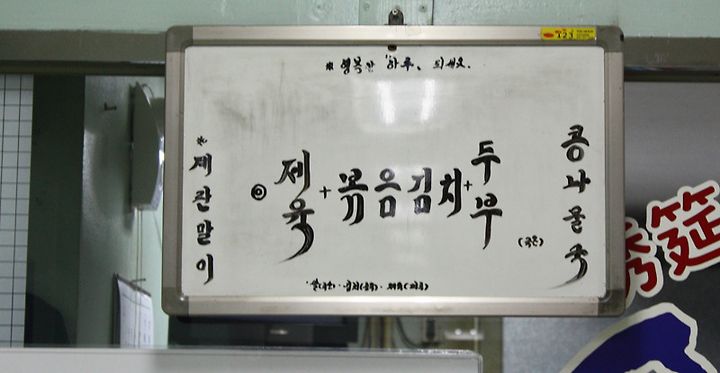 * 행복한 하루, 되세요.
* 계란말이
◎ 제육 + 볶음김치 + 두부
콩나물국
秀筵